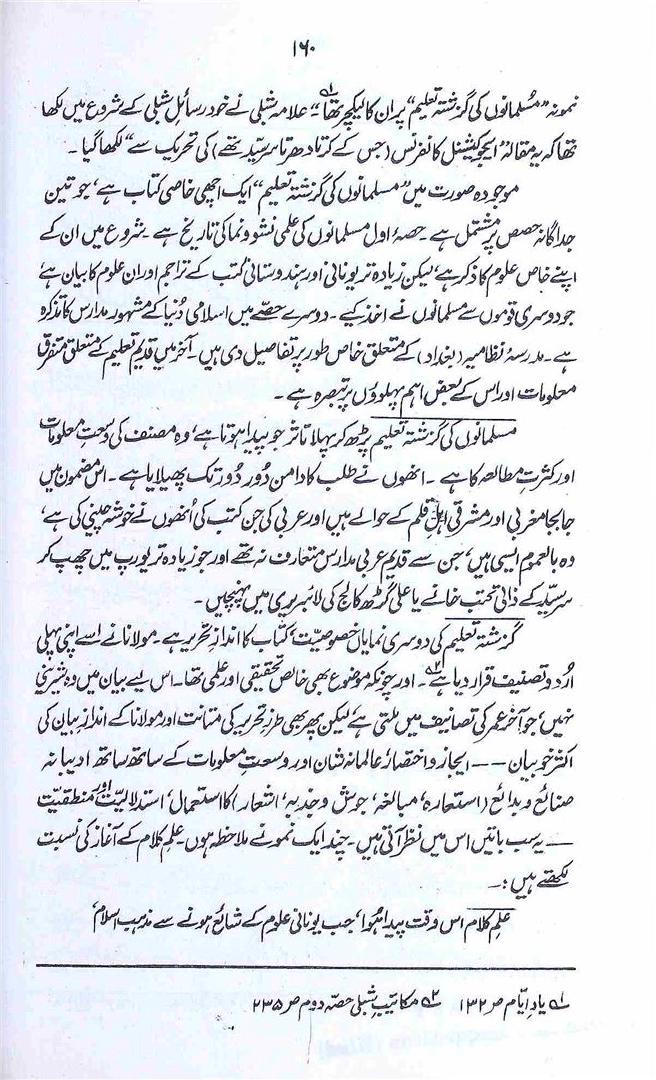 ۱۶۰
نمونہ ”مسلمانوں کی گزشتہ تعلیم“ پر ان کا لیکچر تھا۱؎۔“ علامہ شبلی نے خود رسائل شبلی کے شروع میں لکھا
تھا کہ یہ مقالہ ”ایجوکیشنل کانفرنس (جس کے کرتا دھرتا سرسیّد تھے) کی تحریک سے“ لکھا گیا۔
موجودہ صورت میں ”مسلمانوں کی گزشتہ تعلیم“ ایک اچھی خاصی کتاب ہے، جو تین
جداگانہ حصص پر مشتمل ہے۔ حصۂ اول مسلمانوں کی علمی نشوونما کی تاریخ ہے۔ شروع میں ان کے
اپنے خاص علوم کا ذکر ہے، لیکن زیادہ تر یونانی اور ہندوستانی کتب کے تراجم اور ان علوم کا بیان ہے
جو دوسری قوموں سے مسلمانوں نے اخذ کیے۔ دوسرے حصّے میں اسلامی دُنیا کے مشہور مدارس کا تذکرہ
ہے۔ مدرسۂ نظامیہ (بغداد) کے متعلق خاص طور پر تفاصیل دی ہیں۔ آخر میں قدیم تعلیم کے متعلق متفرق
معلومات اور اس کے بعض اہم پہلوؤں پر تبصرہ ہے۔
مسلمانوں کی گزشتہ تعلیم پڑھ کر پہلا تاثر جو پیدا ہوتا ہے، وہ مصنف کی وسعتِ معلومات
اور کثرتِ مطالعہ کا ہے۔ انھوں نے طلب کا دامن دُور دُور تک پھیلایا ہے۔ اس مضمون میں
جابجا مغربی اور مشرقی اہلِ قلم کے حوالے ہیں اور عربی کی جن کتب کی اُنھوں نے خوشہ چینی کی ہے،
وہ بالعموم ایسی ہیں، جن سے قدیم عربی مدارس متعارف نہ تھے اور جو زیادہ تر یورپ میں چھپ کر
سرسیّد کے ذاتی کتب خانے یا علی گڑھ کالج کی لائبریری میں پہنچیں۔
گزشتہ تعلیم کی دوسری نمایاں خصوصیت، کتاب کا اندازِ تحریر ہے۔ مولانا نے اسے اپنی پہلی
اُردو تصنیف قرار دیا ہے۲؎۔ اور چونکہ موضوع بھی خالص تحقیقی اور علمی تھا۔ اس لیے بیان میں وہ شیرینی
نہیں، جو آخر عمر کی تصانیف میں ملتی ہے، لیکن پھر بھی طرزِ تحریر کی متانت اور مولانا کے اندازِ بیان کی
اکثر خوبیاں —— ایجاز و اختصار، عالمانہ شان اور وسعتِ معلومات کے ساتھ ساتھ ادیبانہ
صنائع و بدائع (استعارہ، مبالغہ، جوش و جذبہ، اشعار) کا استعمال، استدلالیت اور منطقیت
—— یہ سب باتیں اس میں نظر آتی ہیں۔ چند ایک نمونے ملاحظہ ہوں۔ علمِ کلام کے آغاز کی نسبت
لکھتے ہیں:۔
علمِ کلام اس وقت پیدا ہُوا، جب یونانی علوم کے شائع ہونے سے مذہب اسلام،
۱؎ یادِ ایّام ص ۱۳۲ ۲؎ مکاتیبِ شبلی حصّہ دوم ص ۲۳۵